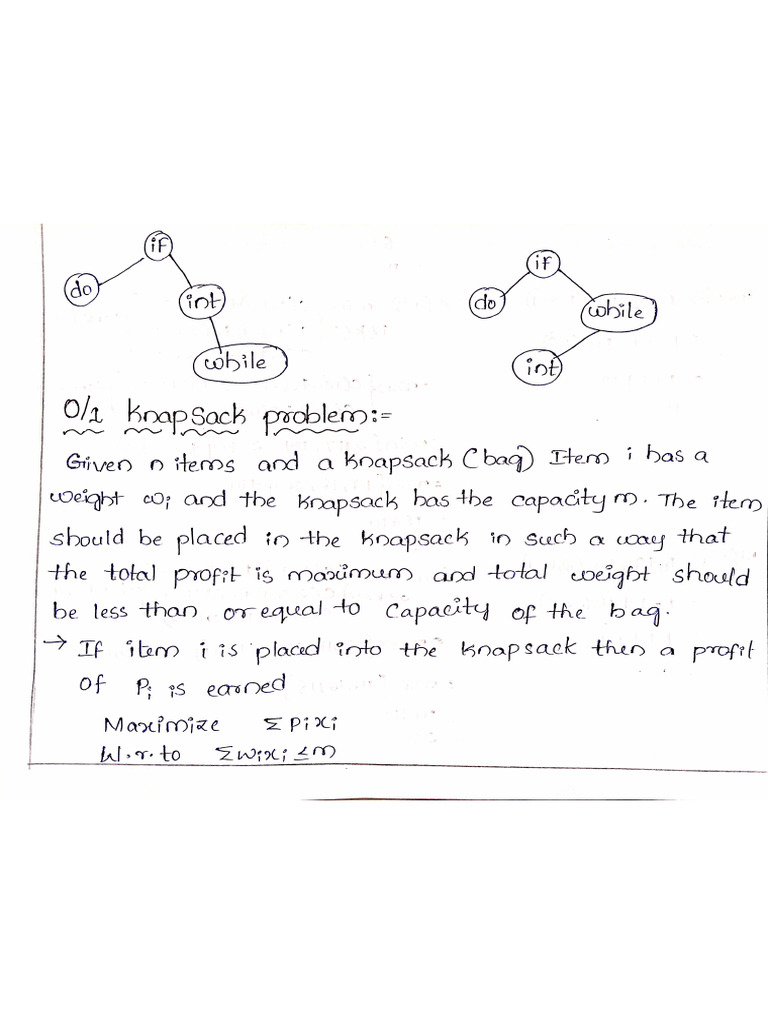 if
if
do
int
do
while
while
int
0/1 Knapsack problem:=
Given n items and a knapsack (bag) Item i has a
weight wi and the knapsack has the capacity m. The item
should be placed in the knapsack in such a way that
the total profit is maximum and total weight should
be less than or equal to capacity of the bag.
→ If item i is placed into the knapsack then a profit
of Pi is earned
Maximize Σ Pixi
W.r.to Σwixi ≤m